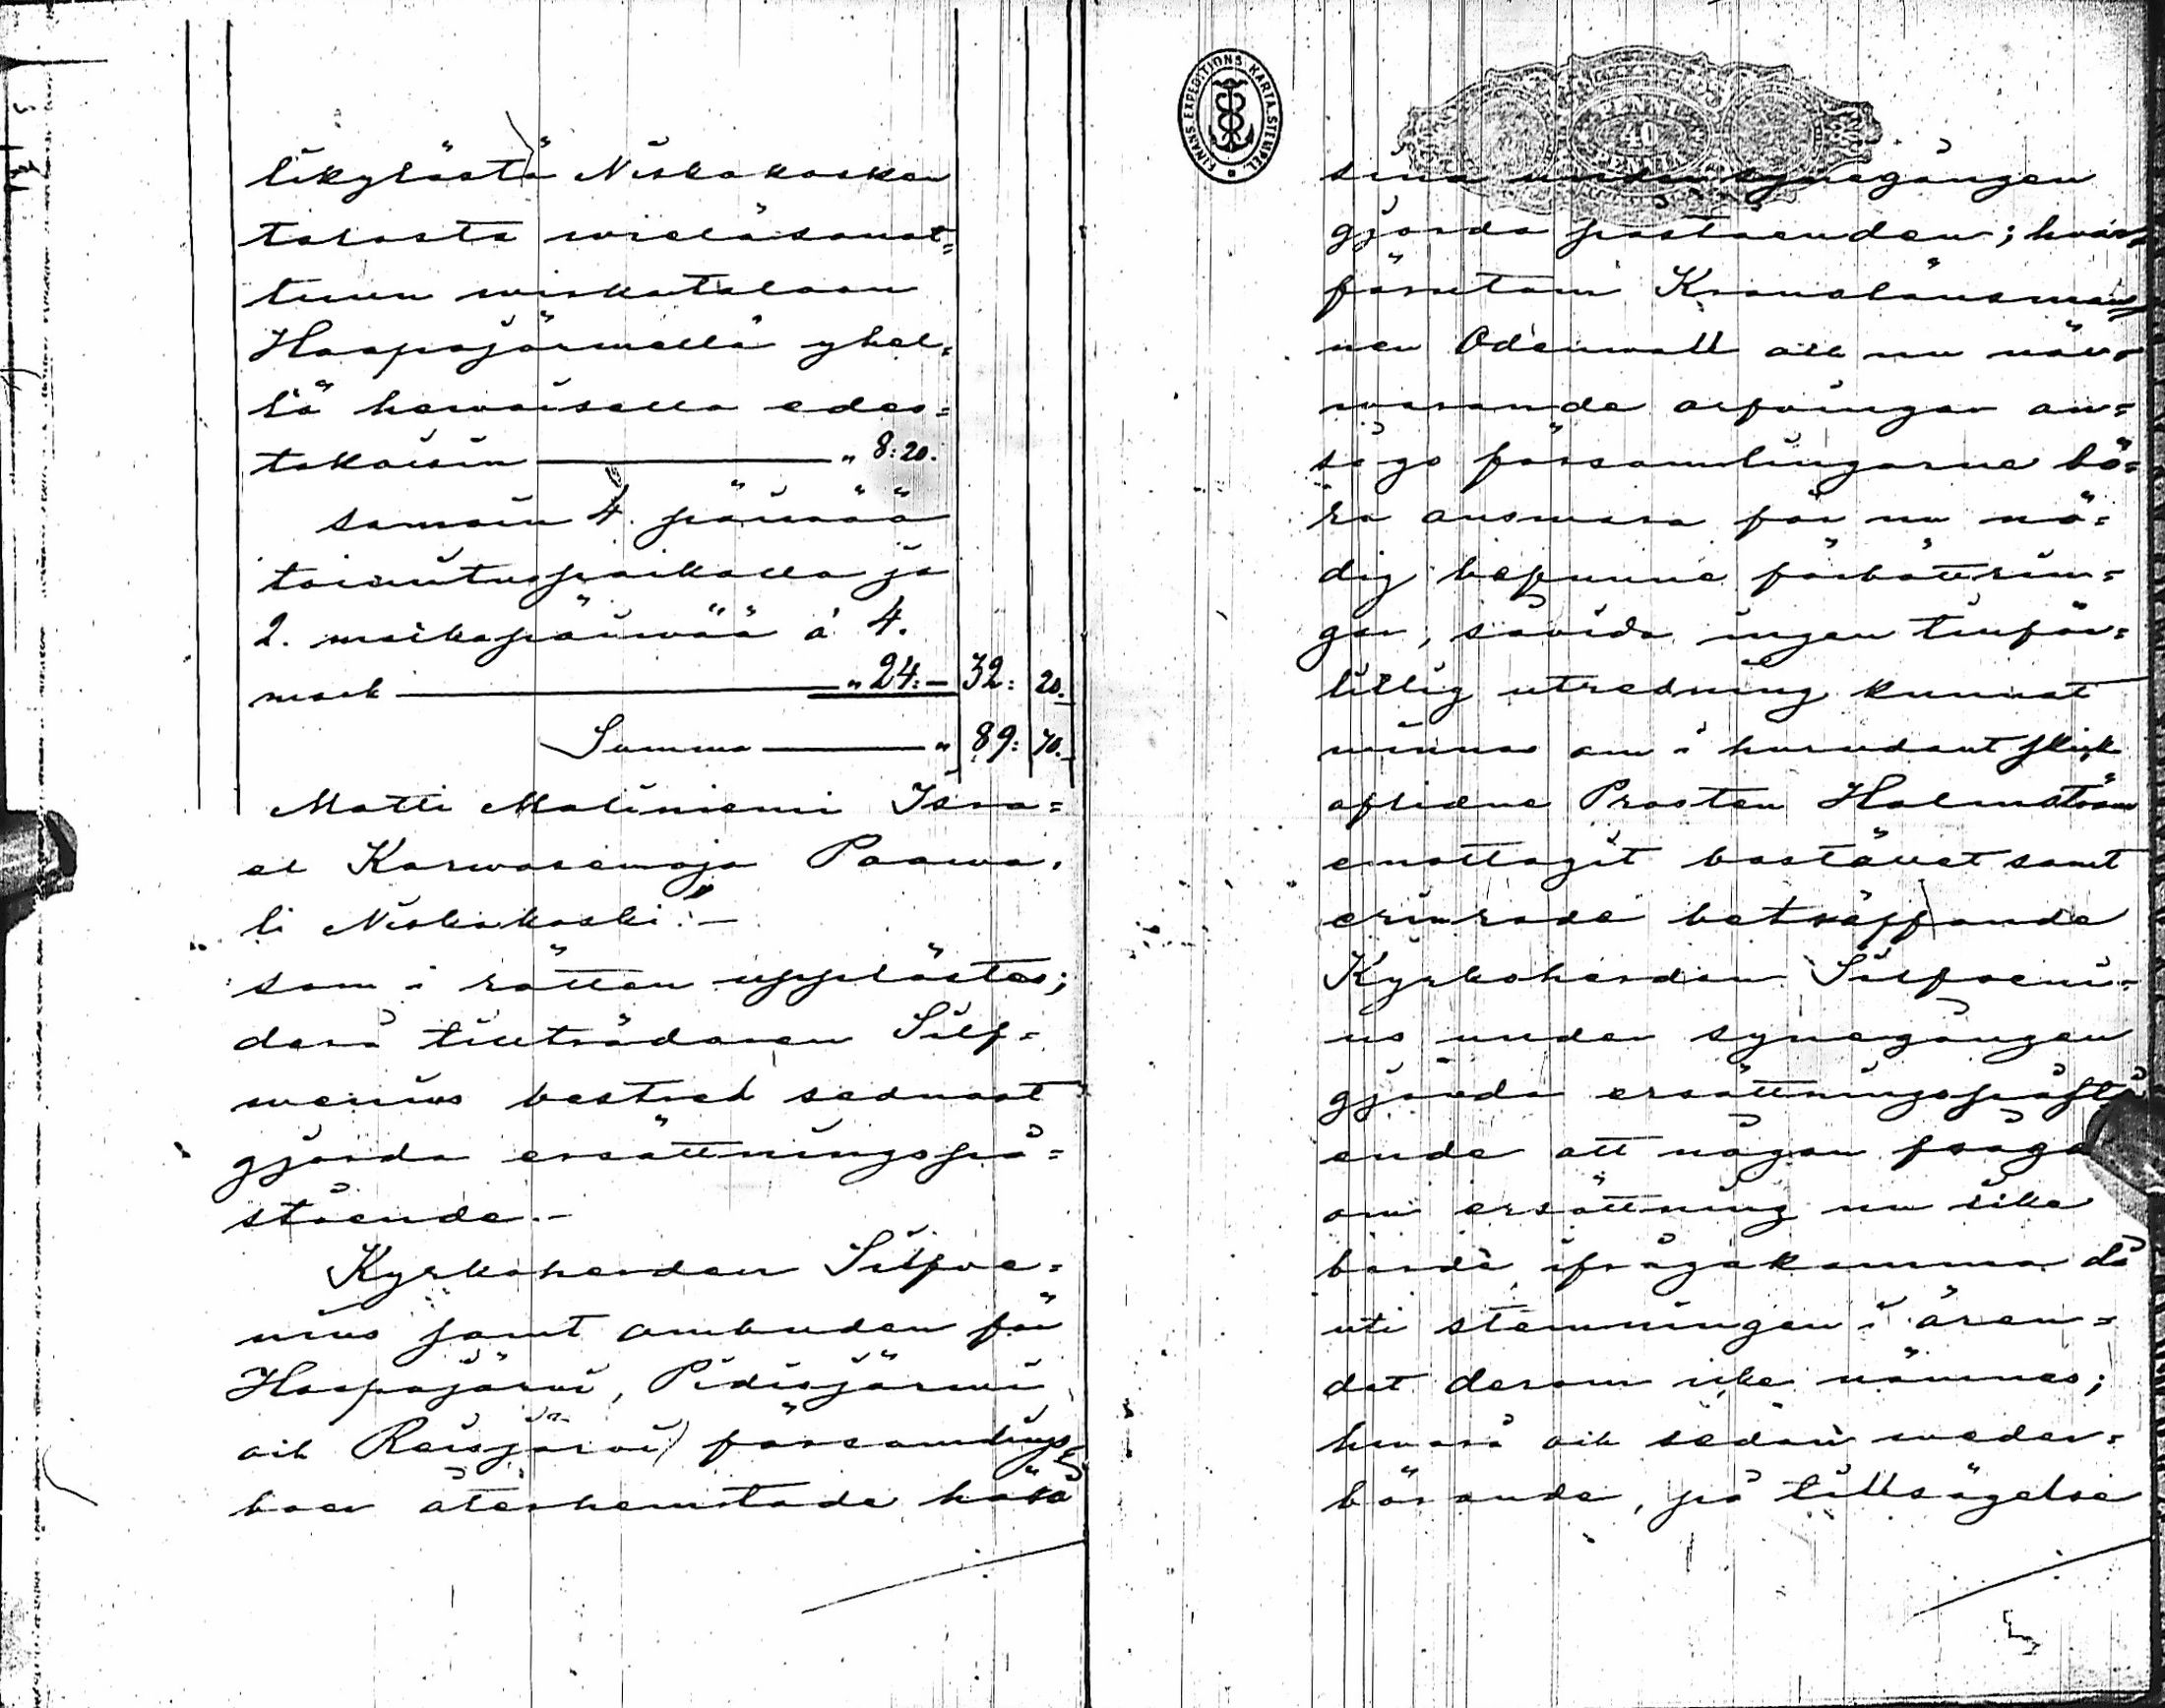 likylästä Niskakosken
talosta wieläsanot=
tuun wirkataloon
Haapajärwellä yhel=
lä hewoisella edes=
takaisin — " 8:20.
samoin 4. päiwää
toimituspaikalla ja
2. matkapäiwää á 4.
mark — " 24:— 32: 20.
Summa — " 89: 70.
Matti Maliniemi Isra=
el Karwasenoja Paawa=
li Niskakoski.—
som i rätten upplästes;
derå tillträdaren Silf=
wenius bestred sednast
gjorda ersättningspå=
stående.—
Kyrkoherden Silfve=
nius samt ombuden för
Haapajärvi, Pidisjärwi
och Reisjärvi församlings=
boer återhemtade håkå
FINANS. EXPEDITIONS. KARTA. STEMPEL
PENNI 40 PENNIÄ
sina under synegången
gjorda påståenden; hvar=
förutom Kronolänsman=
nen Odenwall och nu när=
warande arfvingar an=
sågo församlingarne bö=
ra answara för nu nö=
dig befunne förbättrin=
gar, såvida ingen tillför=
litlig utredning kunnat
winnas om i hurudant skick
aflidne Prosten Holmström
emottagit bostället samt
erinrade beträffande
Kyrkoherden Silfveni=
us under synegången
gjorda ersättningspåstå
ende att någon fråga
om ersättning nu icke
borde ifrågakomma då
uti stemningen i ären=
det derom icke nämnes;
hwarå och sedan weder=
börande, på tillsägelse